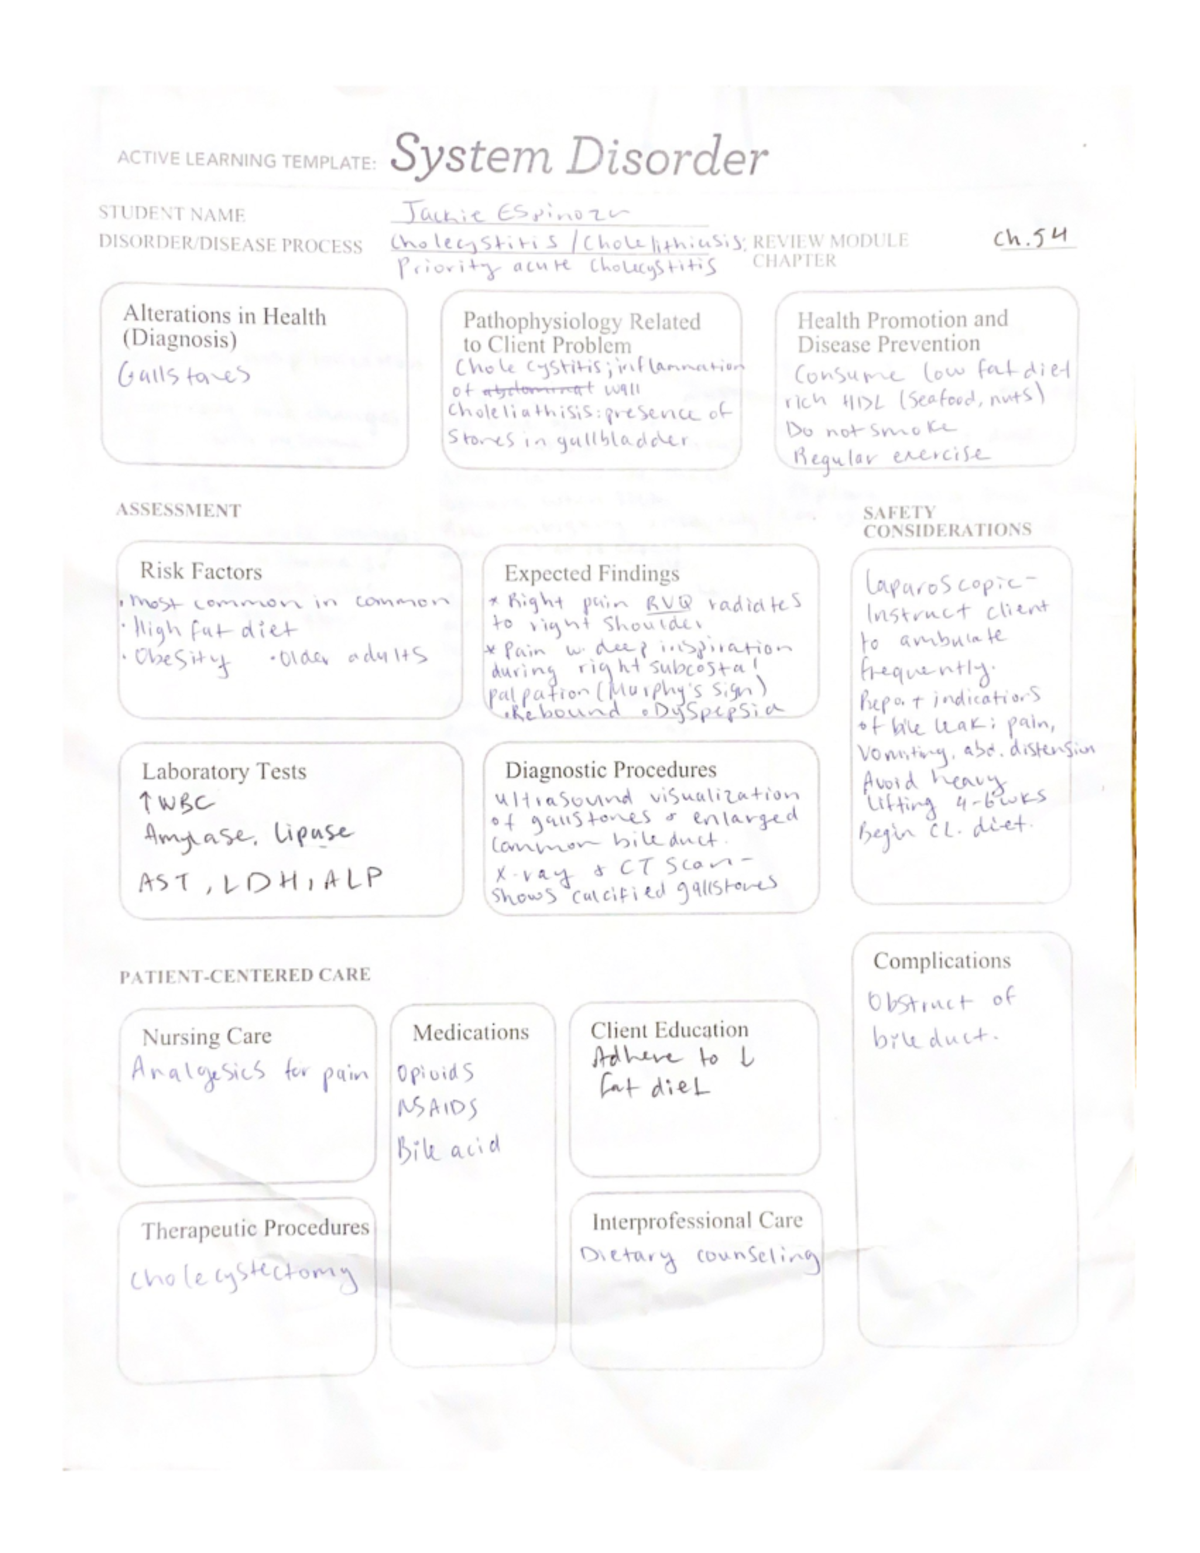 ACTIVE LEARNING TEMPLATE: System Disorder
STUDENT NAME Jackie Espinoza
DISORDER/DISEASE PROCESS Cholecystitis / Cholelithiasis; REVIEW MODULE CHAPTER Ch.54
Priority acute cholecystitis
Alterations in Health
(Diagnosis)
Gallstones
Pathophysiology Related
to Client Problem
Chole cystitis; inflammation
of abdominal wall
Choleliathisis: presence of
stones in gullbladder
Health Promotion and
Disease Prevention
Consume low fat diet
rich HDL (seafood, nuts)
Do not smoke
Regular exercise
ASSESSMENT
SAFETY
CONSIDERATIONS
Risk Factors
• Most common in common
• High fat diet
• Obesity • Older adults
Expected Findings
* Right pain RUQ radiates
to right shoulder
* Pain w. deep inspiration
during right subcostal
palpation (Murphy's sign)
• Rebound • Dyspepsia
Laparoscopic-
Instruct client
to ambulate
frequently.
Report indications
of bile leak; pain,
vomiting, abd. distension
Avoid heavy
lifting 4-6wks
Begin CL. diet.
Laboratory Tests
↑WBC
Amylase, lipase
AST, LDH, ALP
Diagnostic Procedures
ultrasound visualization
of gallstones & enlarged
common bile duct.
X-ray & CT Scan-
shows calcified gallstones
PATIENT-CENTERED CARE
Complications
Obstruct of
bile duct.
Nursing Care
Analgesics for pain
Medications
Opioids
NSAIDS
Bile acid
Client Education
Adhere to ↓
fat diet
Therapeutic Procedures
Cholecystectomy
Interprofessional Care
Dietary counseling